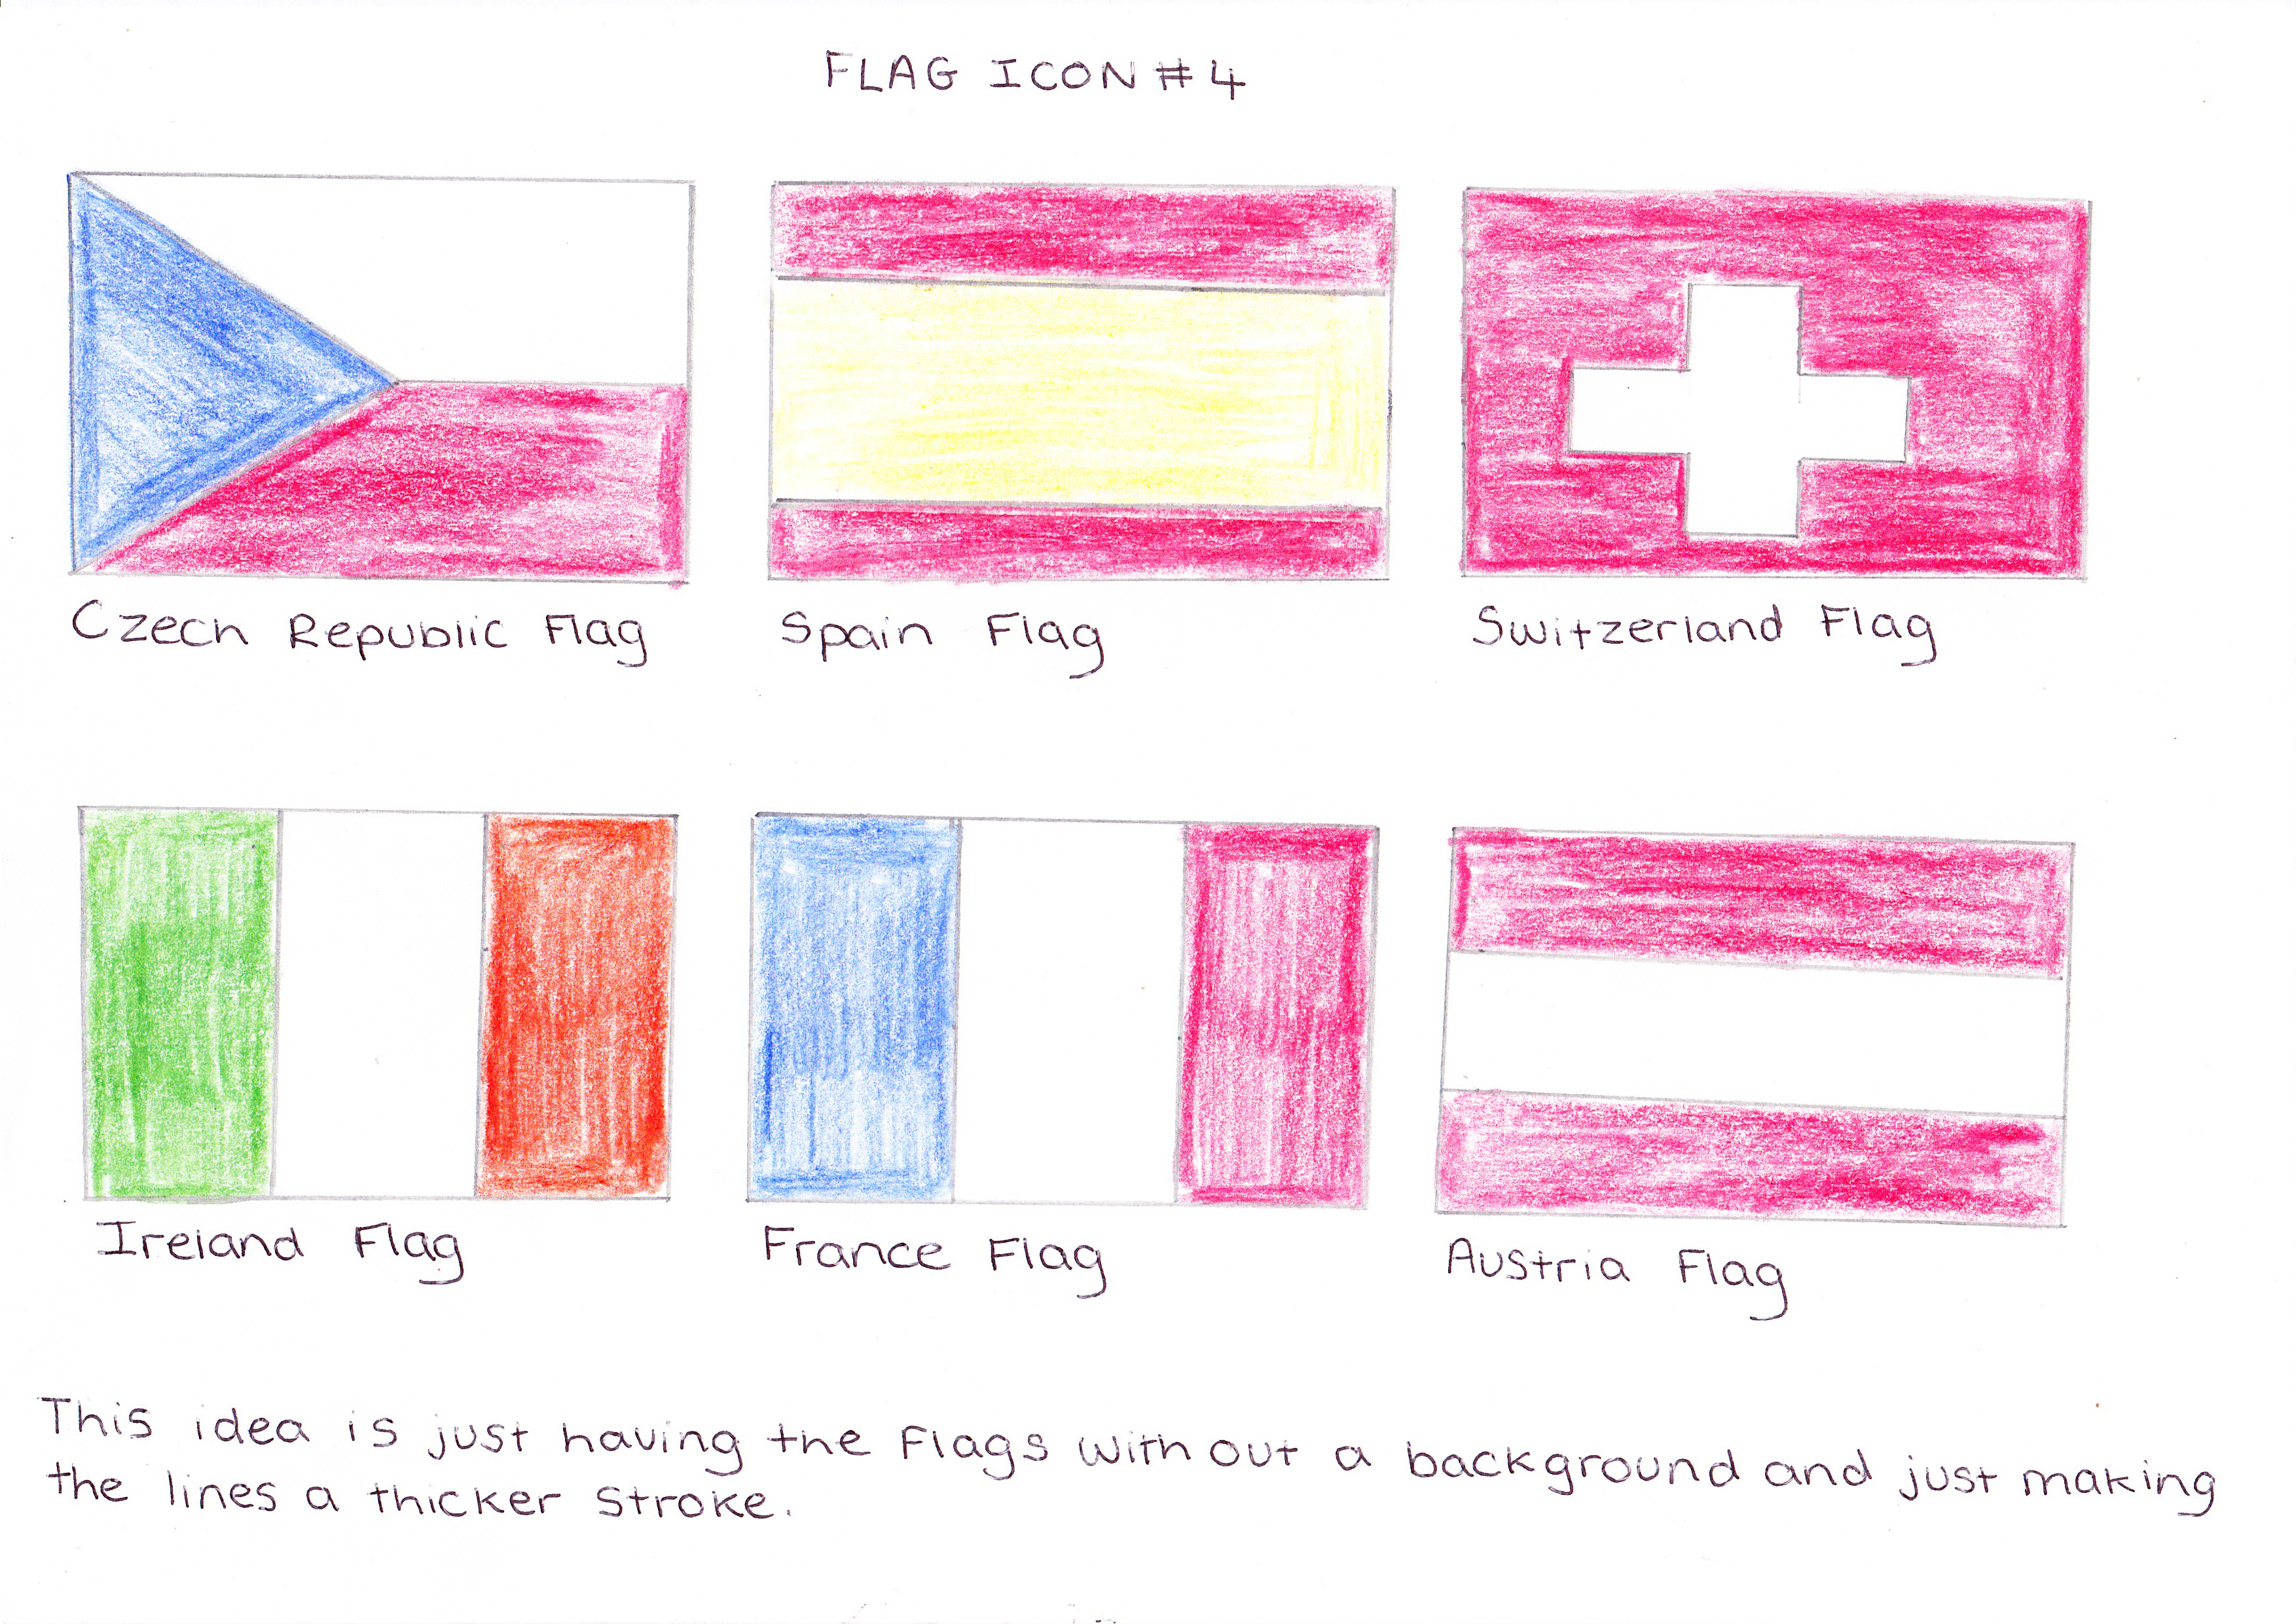 FLAG ICON #4
Czech Republic Flag
Spain Flag
Switzerland Flag
Ireland Flag
France Flag
Austria Flag
This idea is just having the flags with out a background and just making
the lines a thicker stroke.